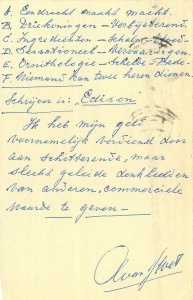 A. Eendracht maakt macht.
B. Driekoningen - Verbijsterend.
C. Ingrediënten - Schalp -
D. Sensationeel - Vervaardigen.
E. Ornithologie - Skelet - Bede -
F. Niemand kan twee heren dienen.
Schrijver is: "Edison
Ik heb mijn geld
voornamelijk verdiend door
aan schitterende, maar
slecht geleide denkbeelden
van anderen, commerciele
waarde te geven -